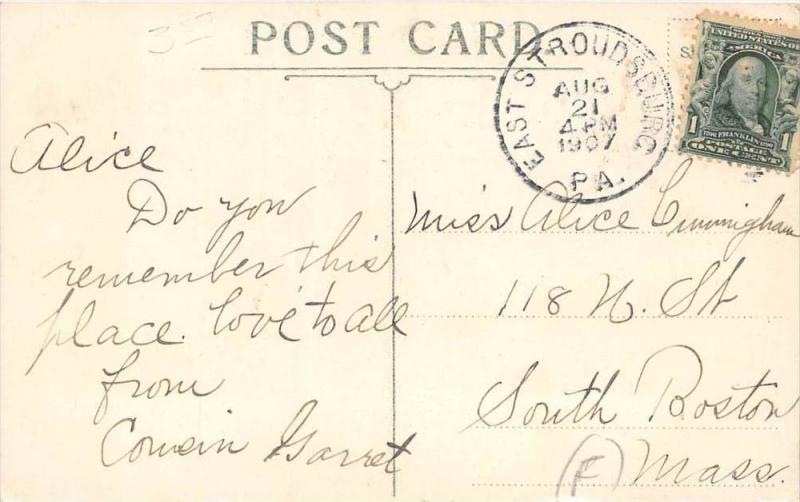 POST CARD
EAST STROUDSBURG
AUG
21
4 PM
1907
PA.
UNITED STATES OF
AMERICA
1 FRANKLIN 1
POSTAGE
ONE CENT
Alice
Do you
remember this
place. love to all
from
Cousin Garret
Miss Alice Cunningham
118 N. St
South Boston
(F) Mass.